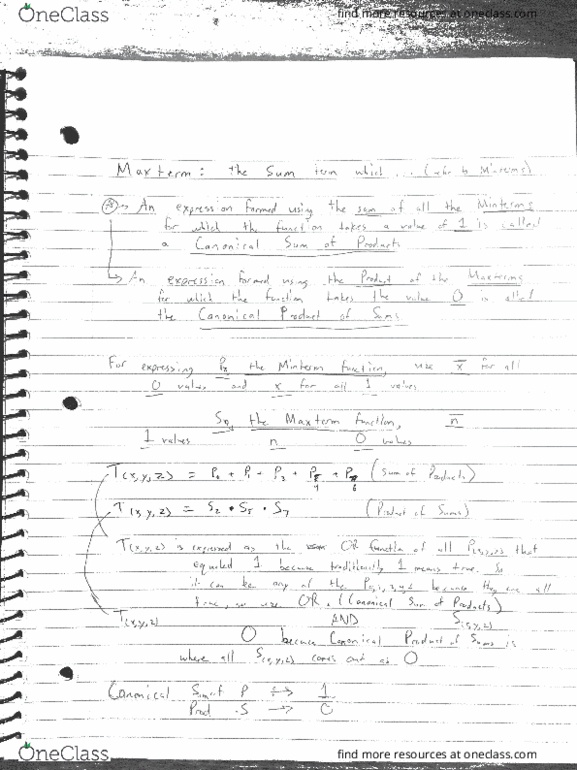 OneClass
find more resources at oneclass.com
Maxterm: the Sum term which ... (refer to Minterms)
An expression formed using the sum of all the Minterms
for which the function takes a value of 1 is called
a Canonical Sum of Products
An expression formed using the Product of the Maxterms
for which the function takes the value 0 is called
the Canonical Product of Sums
For expressing the Minterm function, use x̅ for all
0 values and x for all 1 values
the Maxterm function, n̅
1 values n 0 values
T(x,y,z) = P0 + P1 + P3 + P4 + P6 (Sum of Products)
T(x,y,z) = S2 • S5 • S7 (Product of Sums)
T(x,y,z) is expressed as the OR function of all P(x,y,z) that
equaled 1 because traditionally 1 means true. So
it can be any of the because they are all
true, so use OR. (Canonical Sum of Products)
T(x,y,z) AND S(x,y,z)
0 because Canonical Product of Sums is
where all S(x,y,z) comes out as 0
Canonical Sum of P ↔ 1
Prod .S → 0
OneClass
find more resources at oneclass.com